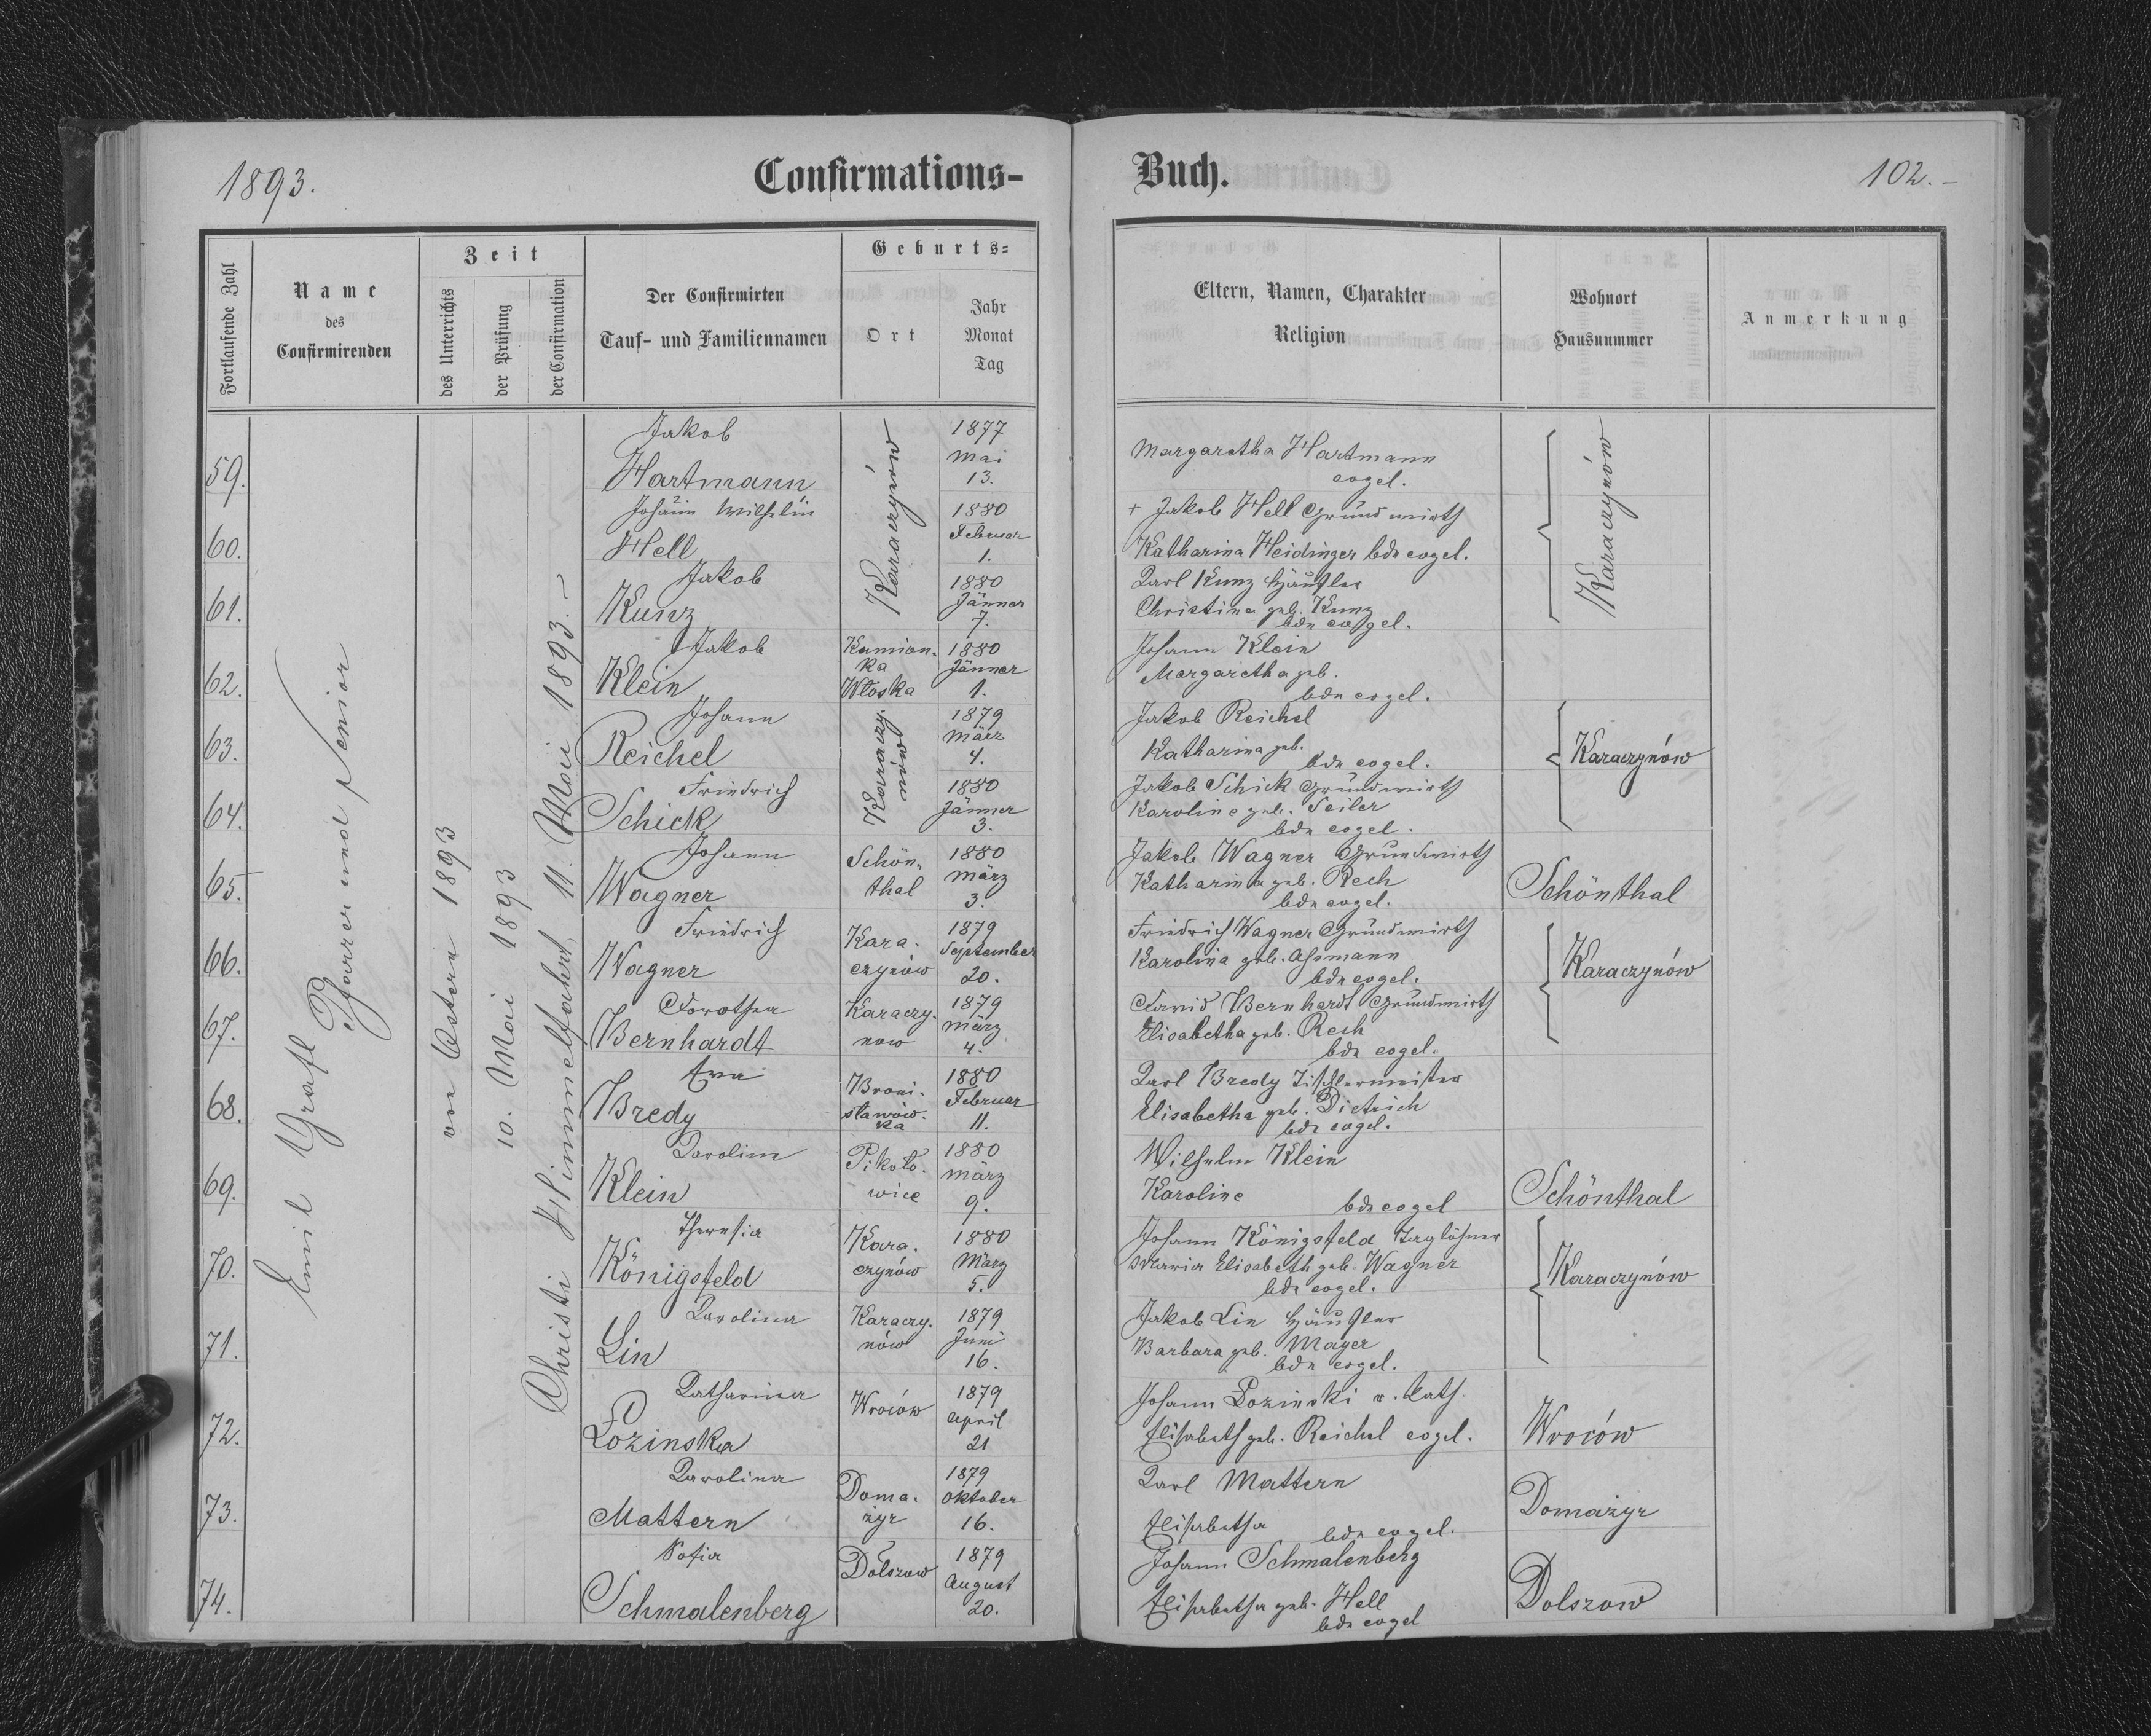 1893.
Confirmations-
Buch.
102.-
Fortlaufende Zahl
Name
des
Confirmirenden
Zeit
des Unterrichts
der Prüfung
der Confirmation
Der Confirmirten
Tauf- und Familiennamen
Geburts-
Ort
Jahr
Monat
Tag
Eltern, Namen, Charakter
Religion
Wohnort
Hausnummer
Anmerkung
Emil Grafl Pfarrer und Senior
vor Ostern 1893
10. Mai 1893
Christi Himmelfahrt 11. Mai 1893.-
59.
Jakob
Hartmann
Karaczynów
1877
Mai
13.
Margaretha Hartmann
evgel.
Karaczynów
60.
Johann Wilhelm
Hell
1880
Februar
1.
+ Jakob Hell Grundwirth
Katharina Heidinger bde evgel.
61.
Jakob
Kunz
1880
Jänner
7.
Carl Kunz Häusler
Christina geb. Kunz
bde evgel.
62.
Jakob
Klein
Kamion-
ka
Włoska
1880
Jänner
1.
Johann Klein
Margaretha geb.
bde evgel.
63.
Johann
Reichel
Karaczy-
nów
1879
März
4.
Jakob Reichel
Katharina geb.
bde evgel.
Karaczynów
64.
Friedrich
Schick
1880
Jänner
3.
Jakob Schick Grundwirth
Karoline geb. Seiler
bde evgel.
65.
Johann
Wagner
Schön-
thal
1880
März
3.
Jakob Wagner Grundwirth
Katharina geb. Rech
bde evgel.
Schönthal
66.
Friedrich
Wagner
Kara-
czynów
1879
September
20.
Friedrich Wagner Grundwirth
Karolina geb. Assmann
bde evgel.
Karaczynów
67.
Dorothea
Bernhardt
Karaczy-
now
1879
März
4.
David Bernhardt Grundwirth
Elisabetha geb. Rech
bde evgel.
68.
Eva
Bredy
Broni-
sławów-
ka
1880
Februar
11.
Carl Bredy Tischlermeister
Elisabetha geb. Dietrich
bde evgel.
69.
Carolina
Klein
Pikoło-
wice
1880
März
9.
Wilhelm Klein
Karoline
bde evgel
Schönthal
70.
Theresia
Königsfeld
Kara-
czynów
1880
März
5.
Johann Königsfeld Taglöhner
Maria Elisabeth geb. Wagner
bde evgel.
Karaczynów
71.
Carolina
Lin
Karaczy-
nów
1879
Juni
16.
Jakob Lin Häusler
Barbara geb. Mayer
bde evgel.
72.
Catharina
Łozinska
Wroców
1879
April
21
Johann Łozinski r. kath.
Elisabeth geb. Reichel evgel.
Wroców
73.
Carolina
Mattern
Doma-
żyr
1879
Oktober
16.
Carl Mattern
Elisabetha
bde evgel.
Domażyr
74.
Sofia
Schmalenberg
Dolszow
1879
August
20.
Johann Schmalenberg
Elisabetha geb. Hell
bde evgel
Dolszow